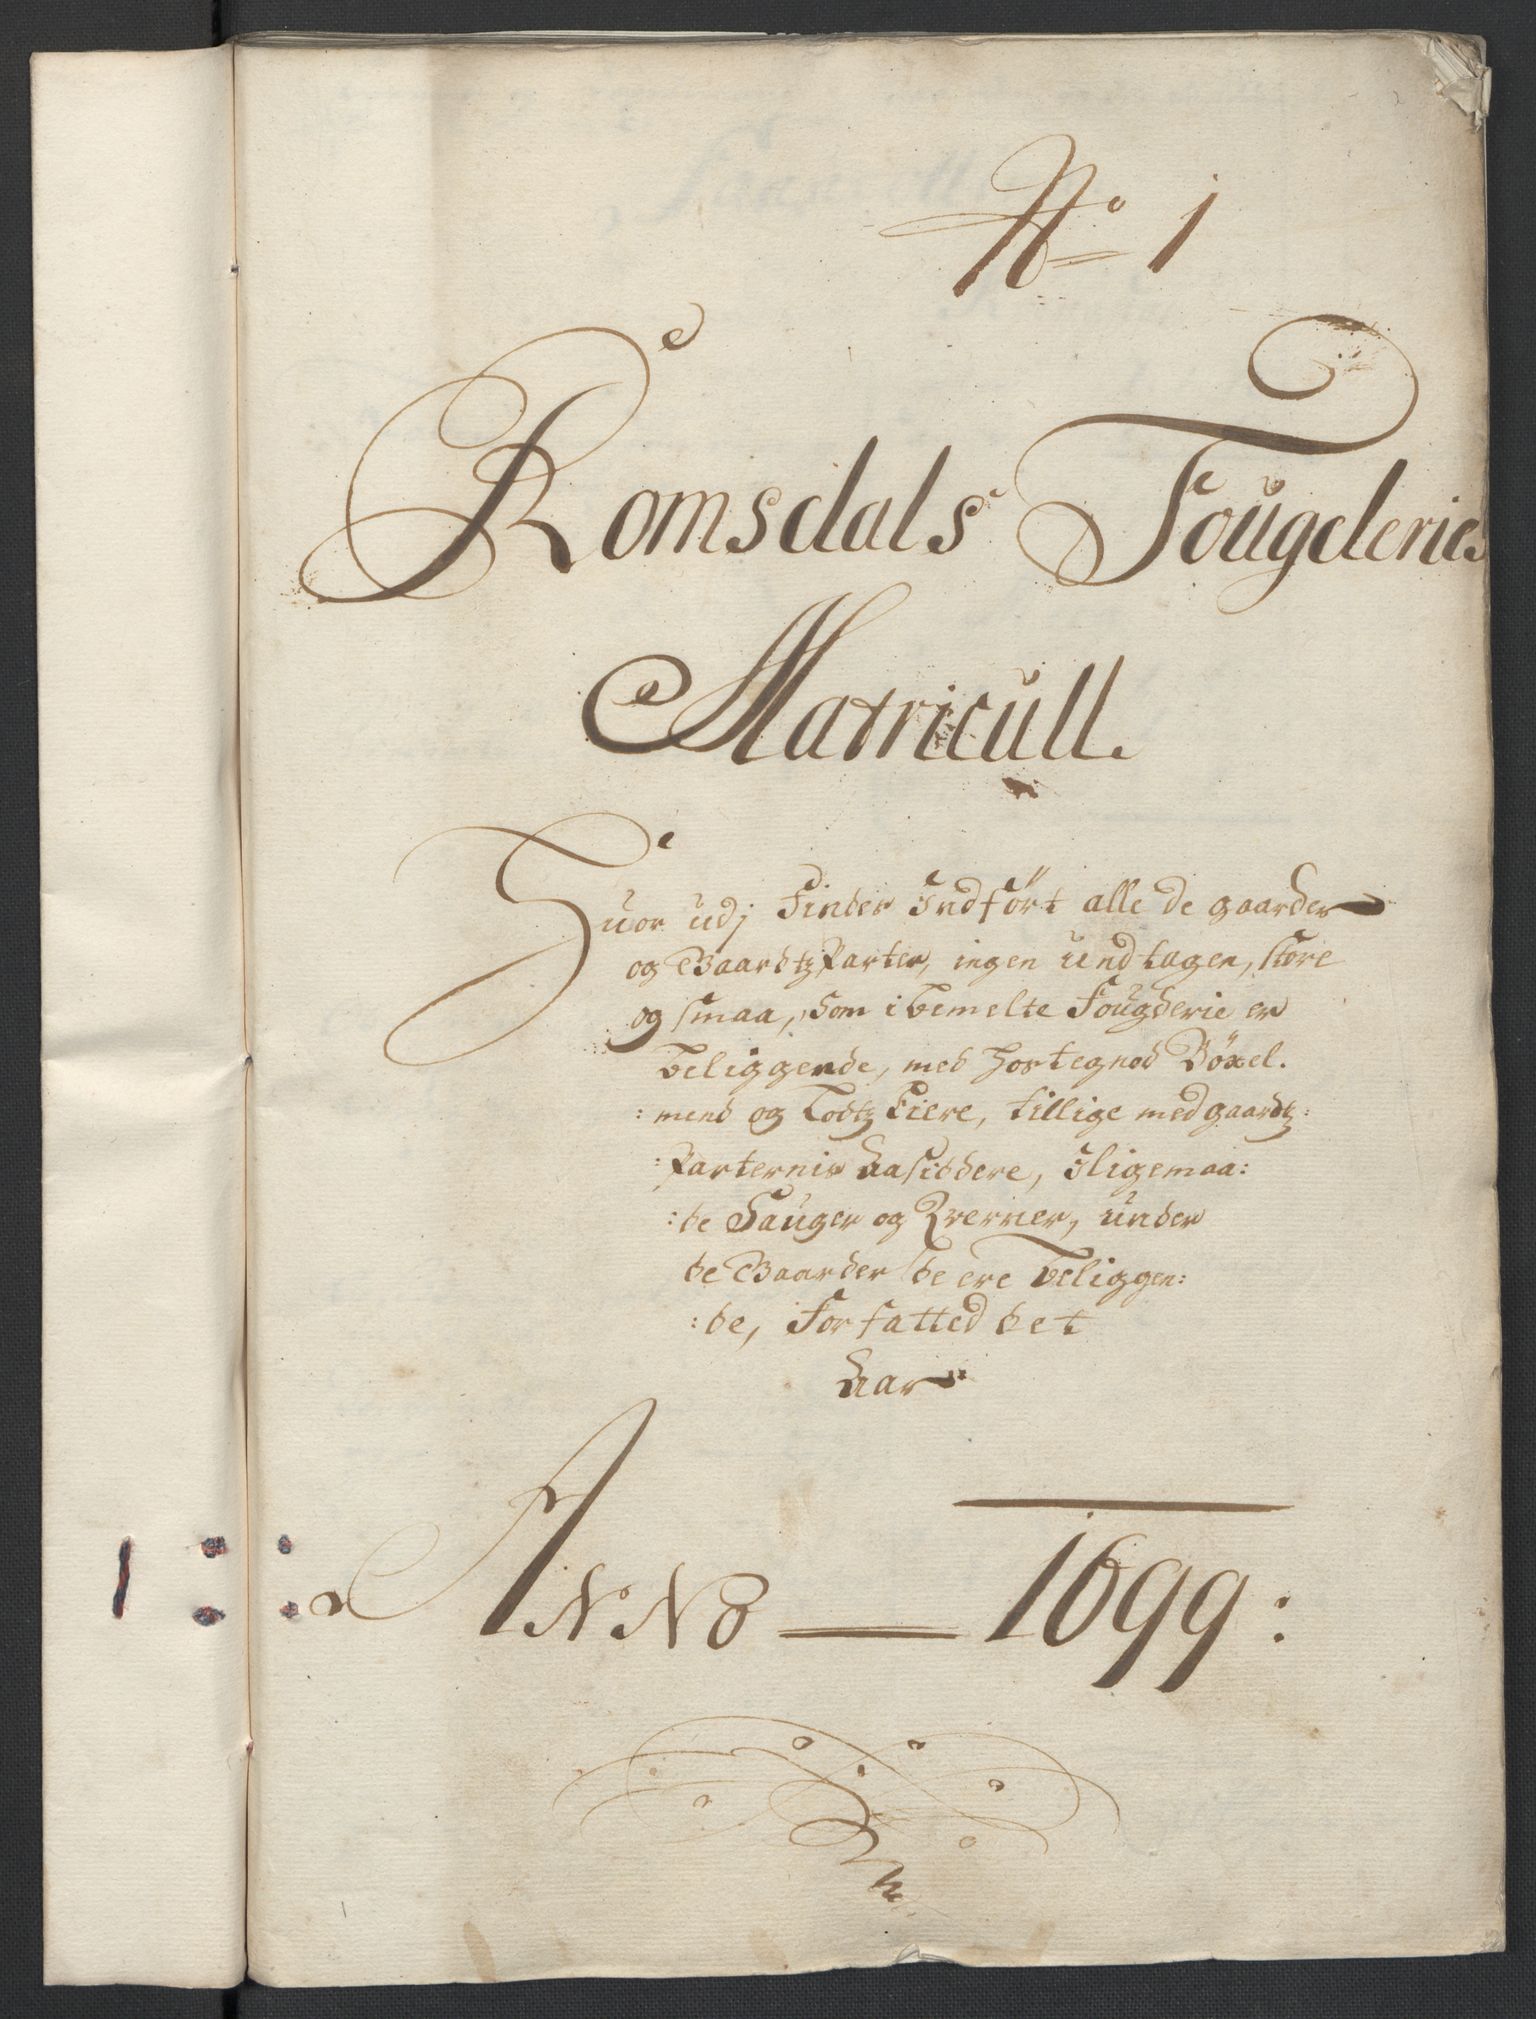 No 1
Romsdals Fougderies
Matricull.
Huor udj Findes Indført alle de gaarder
og Gaardtz Parter, ingen undtagen, store
og smaa, som i bemelte Fougderie er
beliggende, med hostegnod Böxel.
:mend og Lodtz Eiere, tillige med gaardtz:
:Parternis Aasiddere, Sligemaa:
:de Sauger og Qverner, under
de Gaarder de ere beliggen:
:de, Forfatted det
Aar
ANNO — 1699: